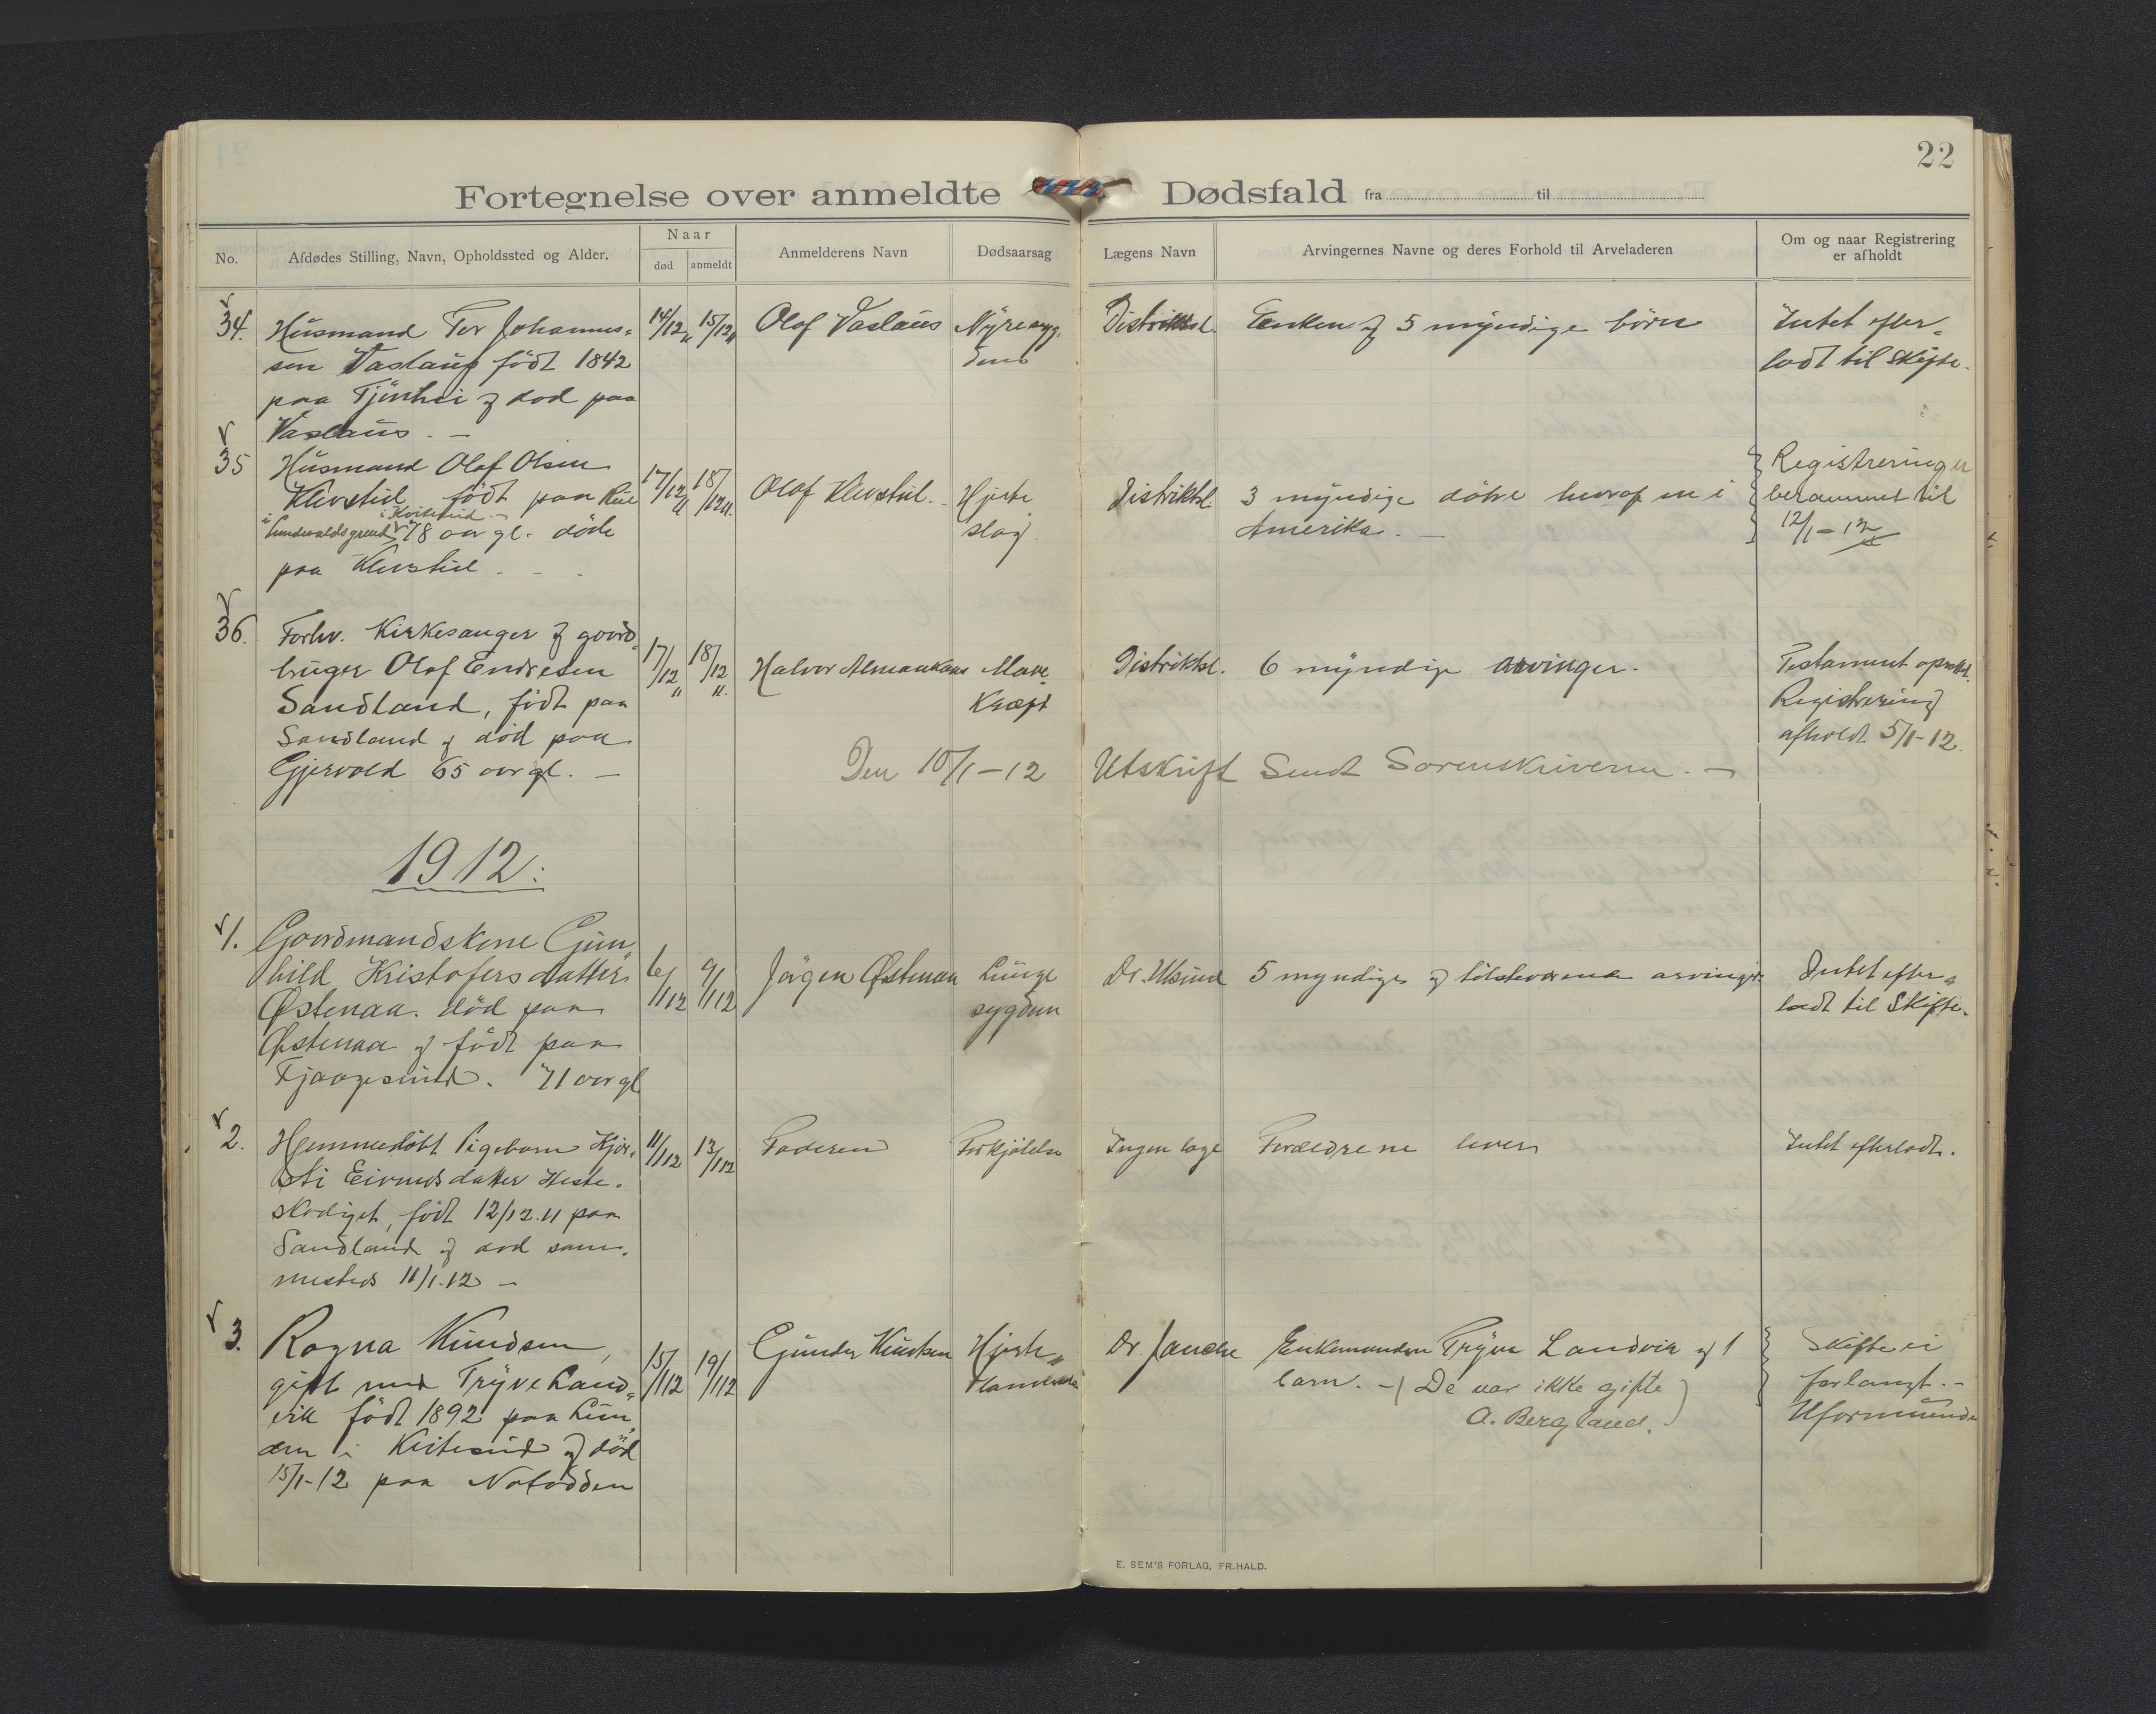 22
Fortegnelse over anmeldte Dødsfald fra til
No.
Afdødes Stilling, Navn, Opholdssted og Alder.
Naar
død
anmeldt
Anmelderens Navn
Dødsaarsag
Lægens Navn
Arvingernes Navne og deres Forhold til Arveladeren
Om og naar Registrering
er afholdt
34.
Husmand Ter Johannes=
sen Vaslaus født 1842
paa Tjönhei & död paa
Vaslaus. —
14/12 11
15/12 11
Olof Vaslaus
Nyresyg.
dom
Distriktsl.
Enken & 5 myndige börn
Intet efter=
ladt til Skifte.
35
Husmand Olaf Olsen
Klevstul født paa Rui
i Kviteseid
i Sundvaldsgrend 78 aar gl. döde
paa Klevstul
17/12 11
18/12 11.
Olaf Klevstul.
Hjerte
slag.
Distriktsl
3 myndige dötre hvoraf en i
Amerika. —
Registreringen
berammet til
12/1 – 12
36.
Forhv. Kirkesanger & gaard=
bruger Olaf Endresen
Sandland, født paa
Sandland & död paa
Gjervold 65 aar gl. —
17/12 11
18/12 11.
Halvor
Mave
Kræft
Distriktsl.
6 myndige arvinger.
Testament
Registrering
afholdt 5/1-12.
Den 10/1 – 12 Utskrift Sendt Sorenskriveren. —
1912:
1.
Gaardmandskone Gun
hild Kristofersdatter
Østenaa. död paa
Østenaa & född paa
Fjaagesund. 71 aar gl
6/1 12
9/1 12
Jörgen Østenaa
Lunge
sygdom
Dr.
5 myndige & tilstedeværende arvinger
Intet efter=
ladt til Skifte.
2.
Hjemmedöbt Pigebarn Kjer=
sti Eivindsdatter Heste=
skodiget, født 12/12.11 paa
Sandland & död sam=
mesteds 11/1.12 —
11/1 12
13/1 12
Faderen
Forkjölelse
Ingen læge
Forældrene lever
Intet efterladt.
3.
Ragna Knudsen,
gift med Trÿve Land=
vik født 1892 paa Lun=
den i Kviteseid & död
15/1-12 paa Notodden
15/1 12
19/1 12
Gunder Knudsen
Hjerte=
Dr. Janche
Enkemanden Trÿve Landvik & 1
barn. – (De var ikke gifte
A. Bergland.)
Skifte ei
forlangt. –
Uformuende
E. SEM'S FORLAG, FR.HALD.